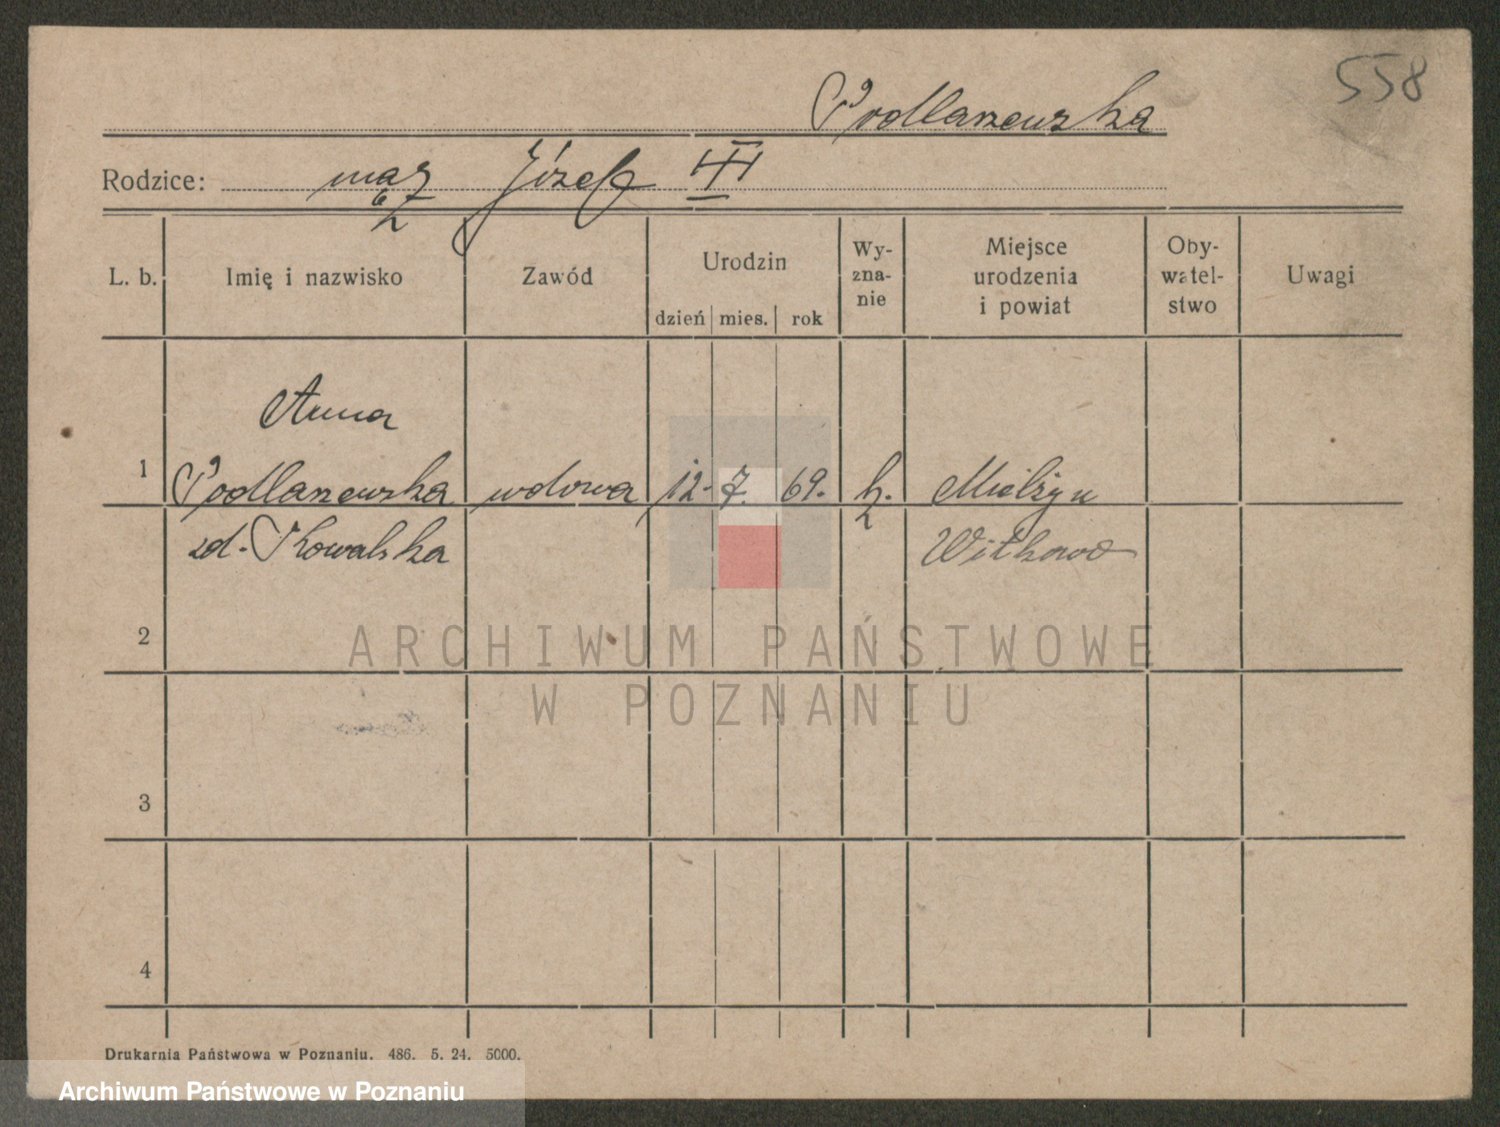 558
Podlaszewska
Rodzice: mąż Józef III
L. b. Imię i nazwisko Zawód Urodzin dzień mies. rok Wy-zna-nie Miejsce urodzenia i powiat Oby-watel-stwo Uwagi
Anna
1 Podlaszewska wdowa 12. 7. 69. k. Mielżyn
zd. Kowalska Witkowo
2
ARCHIWUM PAŃSTWOWE
W POZNANIU
3
4
Drukarnia Państwowa w Poznaniu. 486. 5. 24. 5000.
Archiwum Państwowe w Poznaniu